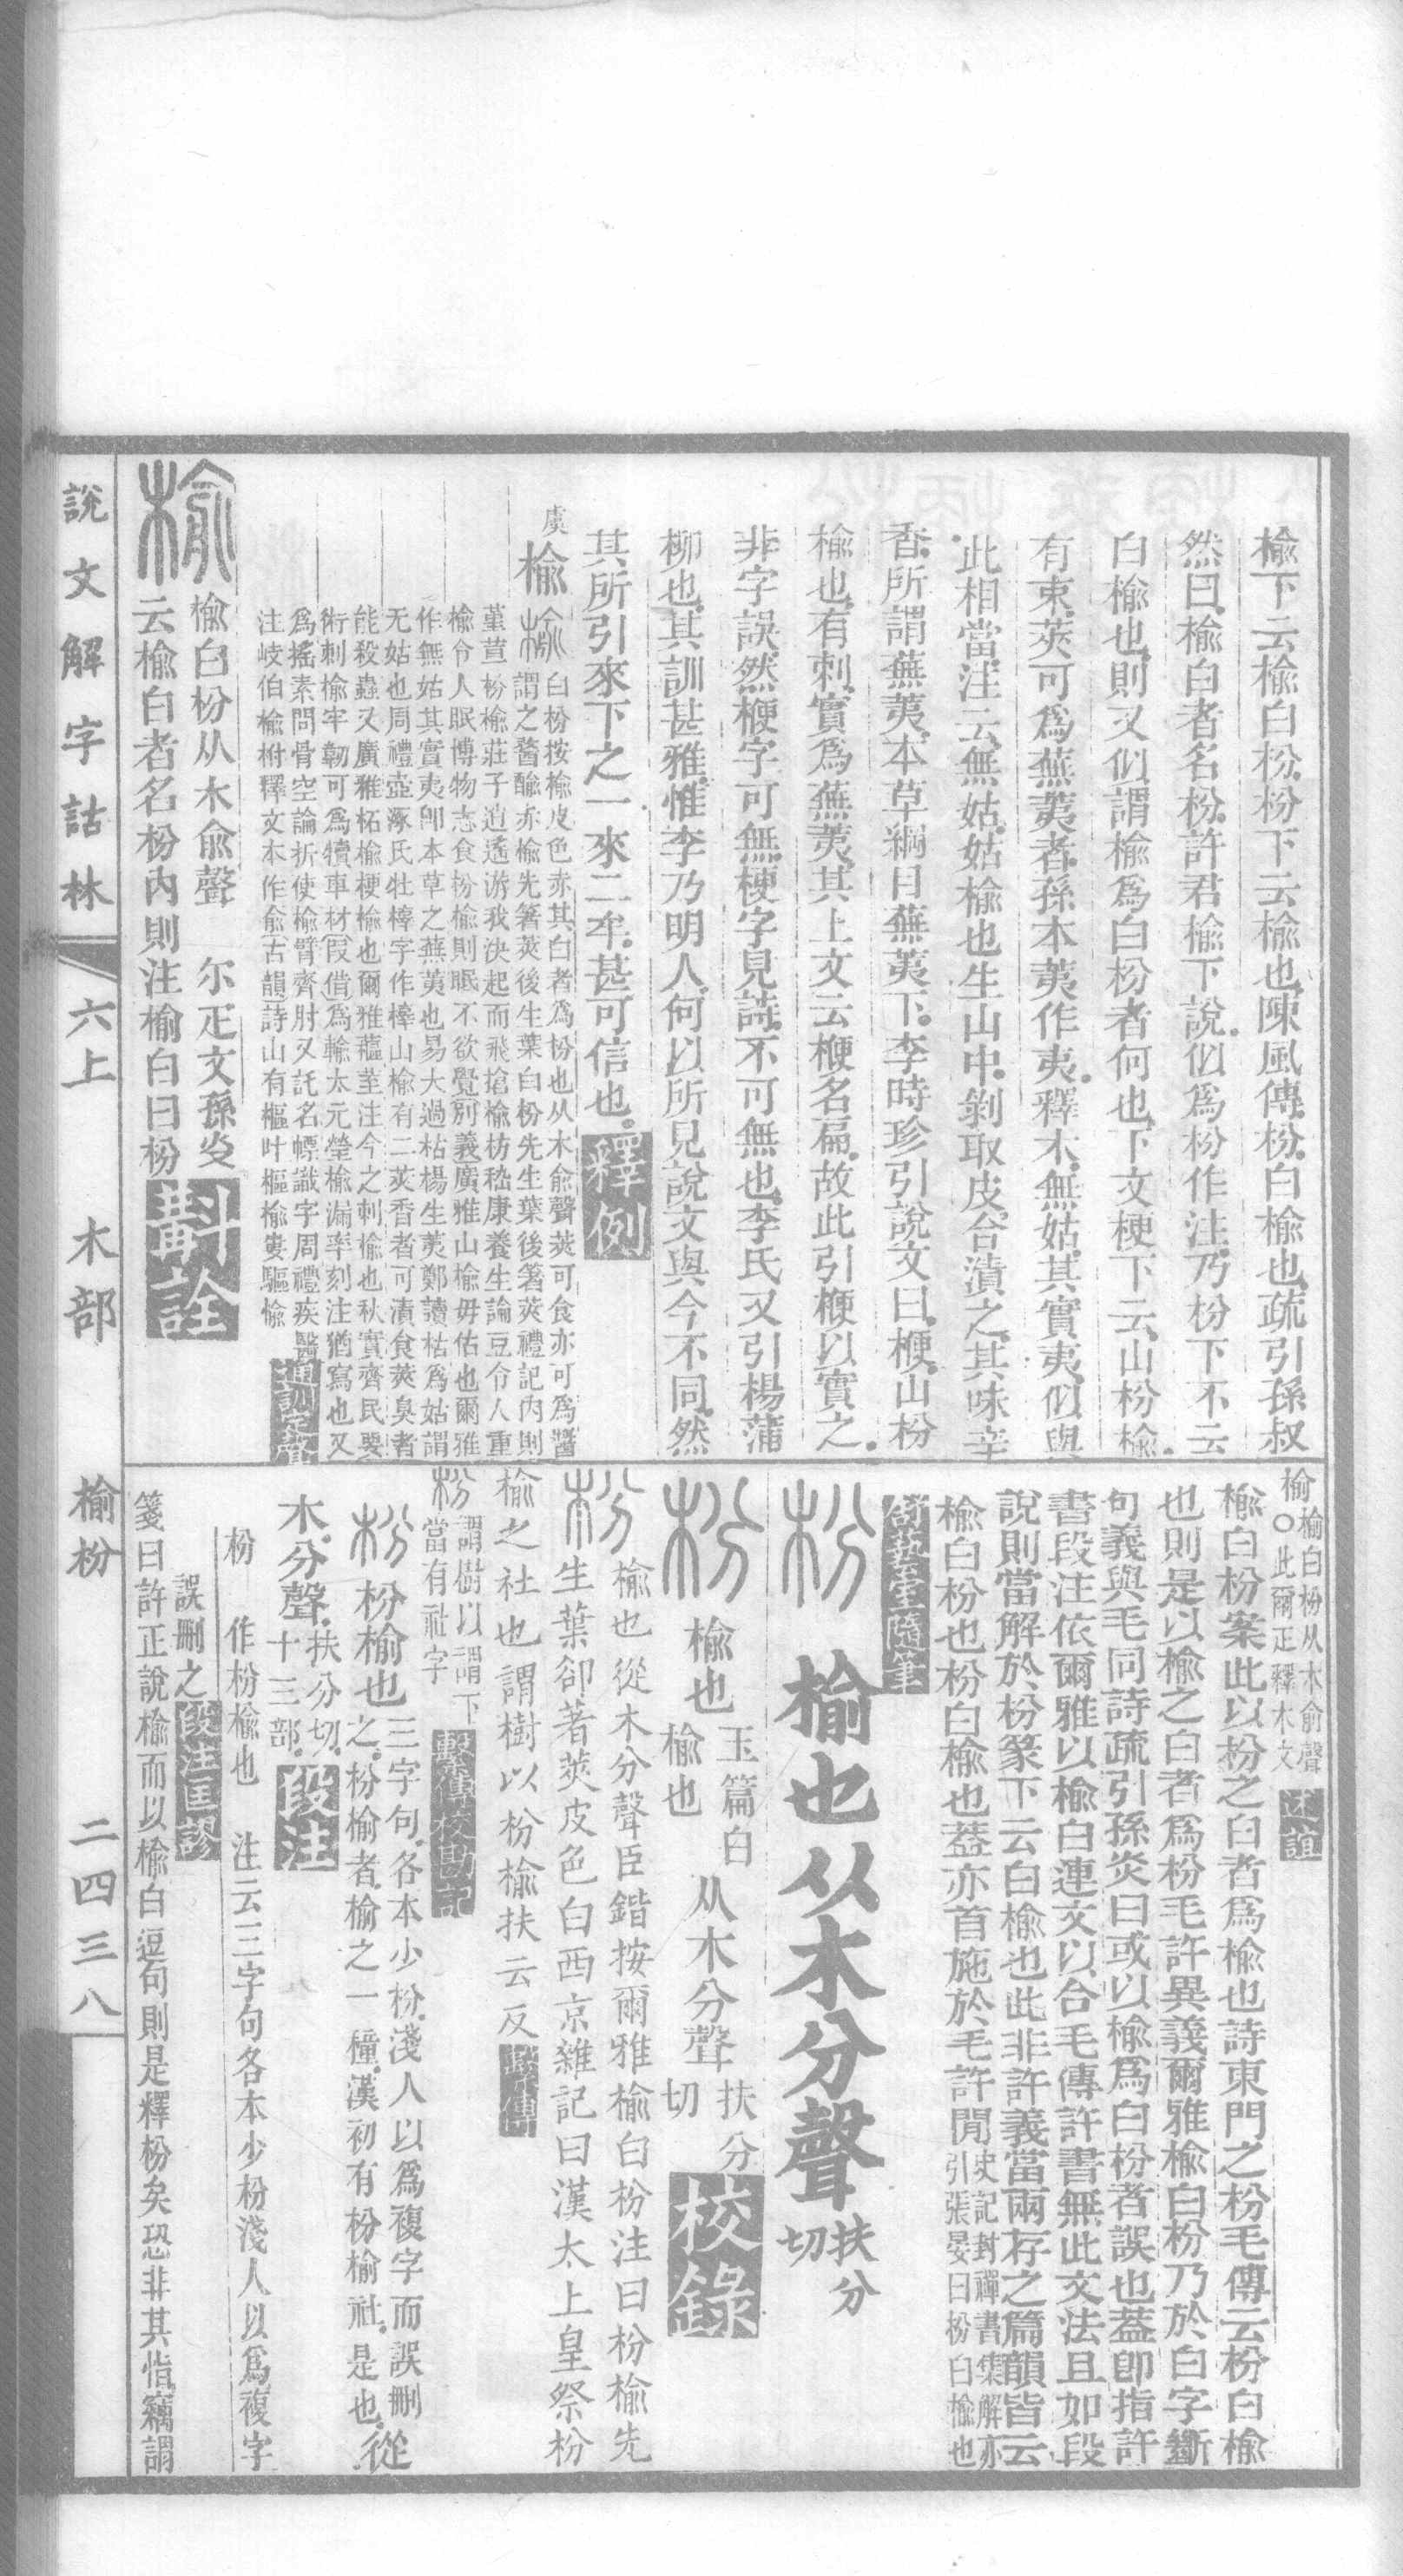 榆下云榆白枌.枌下云榆也.陳風傳.枌.白榆也.疏引孫叔
然曰.榆白者名枌.許君榆下說.似爲枌作注.乃枌下不云
白榆也.則又似謂榆爲白枌者何也.下文梗下云.山枌榆.
有朿.莢可爲蕪荑者.孫本荑作夷.釋木.無姑.其實夷.似與
此相當.注云.無姑.姑榆也.生山中.剝取皮.合漬之.其味辛
香.所謂蕪荑.本草綱目蕪荑下.李時珍引說文曰.梗.山枌
榆也.有刺.實爲蕪荑.其上文云梗名扁.故此引梗以實之.
非字誤.然梗字可無.梗字見詩.不可無也.李氏又引楊蒲
柳也.其訓甚雅.惟李乃明人.何以所見說文與今不同.然
其所引來下之一來二牟.甚可信也.釋例
虞
榆
白枌按榆皮色赤其白者爲枌也从木俞聲莢可食亦可爲醬
謂之䤅䤅亦榆先箸莢後生葉白枌先生葉後箸莢禮記內則
堇荁枌榆莊子逍遙游我決起而飛搶榆枋嵇康養生論豆令人重
榆令人眠博物志食枌榆則眠不欲覺別義廣雅山榆毋估也爾雅
作無姑其實夷卽本草之蕪荑也易大過枯楊生荑鄭讀枯爲姑謂
无姑也周禮壺涿氏牡橭字作橭山榆有二莢香者可漬食莢臭者
能殺蟲又廣雅柘榆梗榆也爾雅藲荎注今之刺榆也秋實齊民要
術刺榆牢韌可爲犢車材叚借爲輸太元瑩榆漏率刻注猶寫也又
爲搖素問骨空論折使榆臂齊肘又託名幖識字周禮疾醫
注岐伯榆柎釋文本作俞古韻詩山有樞叶樞榆婁驅愉
通訓定聲
榆
榆白枌从木俞聲 尔疋文孫炎
云榆白者名枌內則注榆白曰枌
斠詮
榆
榆白枌从木俞聲
○此爾疋釋木文
述誼
榆白枌案此以枌之白者爲榆也詩東門之枌毛傳云枌白榆
也則是以榆之白者爲枌毛許異義爾雅榆白枌乃於白字斷
句義與毛同詩疏引孫炎曰或以榆爲白枌者誤也蓋卽指許
書段注依爾雅以榆白連文以合毛傳許書無此文法且如段
說則當解於枌篆下云白榆也此非許義當兩存之篇韻皆云
榆白枌也枌白榆也蓋亦首施於毛許閒
史記封禪書集解亦
引張晏曰枌白榆也
舒蓺室隨筆
枌 榆也从木分聲
扶分
切
枌
榆也
玉篇白
榆也
从木分聲
扶分
切
校錄
枌
榆也從木分聲臣鍇按爾雅榆白枌注曰枌榆先
生葉卻著莢皮色白西京雜記曰漢太上皇祭枌
榆之社也謂樹以枌榆扶云反
繫傳
枌
謂樹以謂下
當有社字
繫傳校勘記
枌
枌榆也
三字句.各本少枌.淺人以爲複字而誤刪
之.枌榆者.榆之一種.漢初有枌榆社.是也.
從
木.分聲.
扶分切.
十三部.
段注
枌 作枌榆也 注云三字句各本少枌淺人以爲複字
誤刪之
段注匡謬
箋曰許正說榆而以榆白逗句則是釋枌矣恐非其恉竊謂
說文解字詁林
六上
木部
榆枌
二四三八